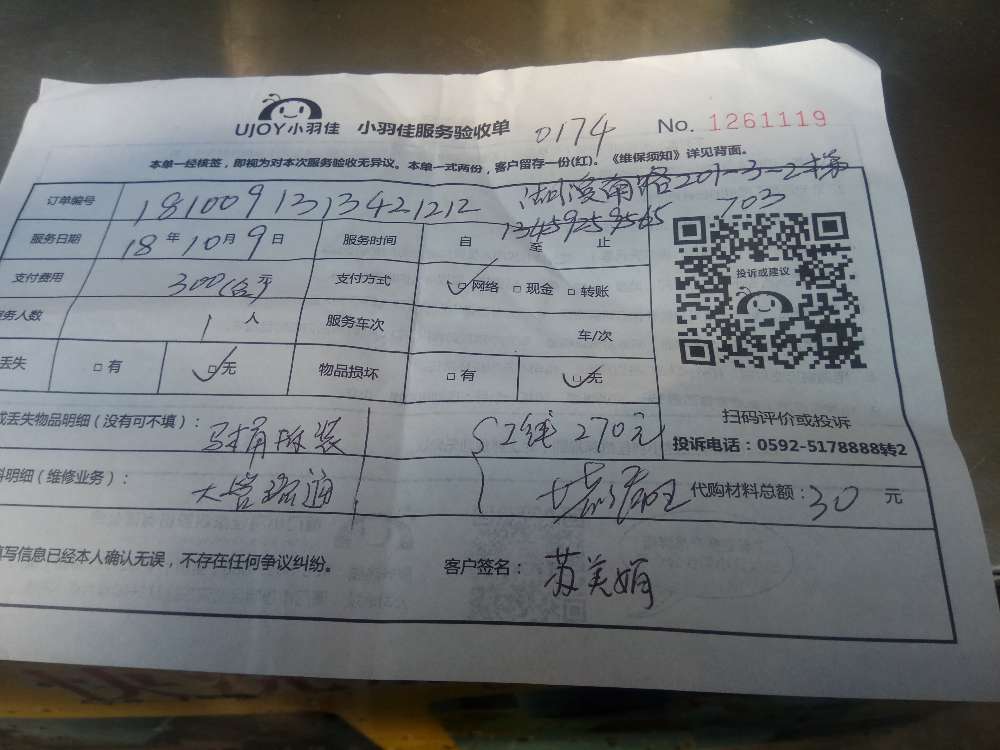 UJOY小羽佳 小羽佳服务验收单 0174 No. 1261119
本单一经核签，即视为对本次服务验收无异议。本单一式两份，客户留存一份(红)。《维保须知》详见背面。
订单编号 181009131342 1212 湖滨南路201-3-2梯
703
13459259565
服务日期 18年10月9日 服务时间 自 至 止
投诉或建议
支付费用 300(含)元 支付方式 □网络 □现金 □转账
务人数 1人 服务车次 车/次
丢失 □有 □无 物品损坏 □有 □无
扫码评价或投诉
或丢失物品明细（没有可不填）： 马桶拆装 人工线 270元
投诉电话：0592-5178888转2
料明细（维修业务）： 大管疏通 代购材料总额：30元
填写信息已经本人确认无误，不存在任何争议纠纷。 客户签名：苏美娟